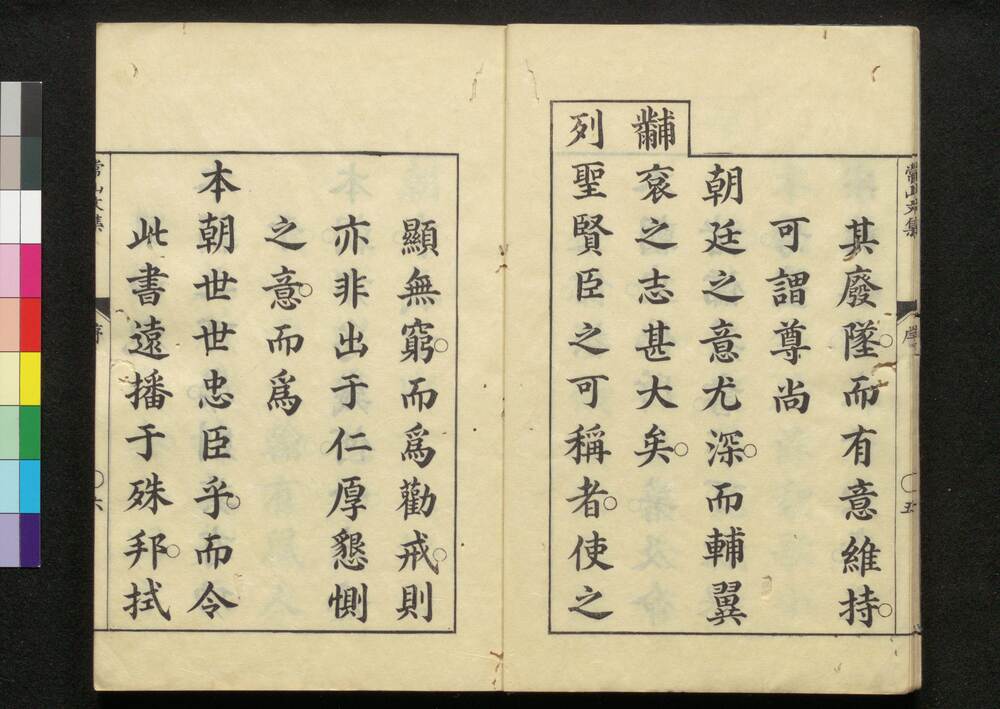 常山文集 序 五
其廢墜。而有意維持。
可謂尊尚
朝廷之意尤深。而輔翼
黼衮之志甚大矣。
列聖賢臣之可稱者。使之
顯無窮。而爲勸戒。則
亦非出于仁厚懇惻
之意。而爲
本朝世世忠臣乎。而令
此書遠播于殊邦。拭
常山文集 序 六